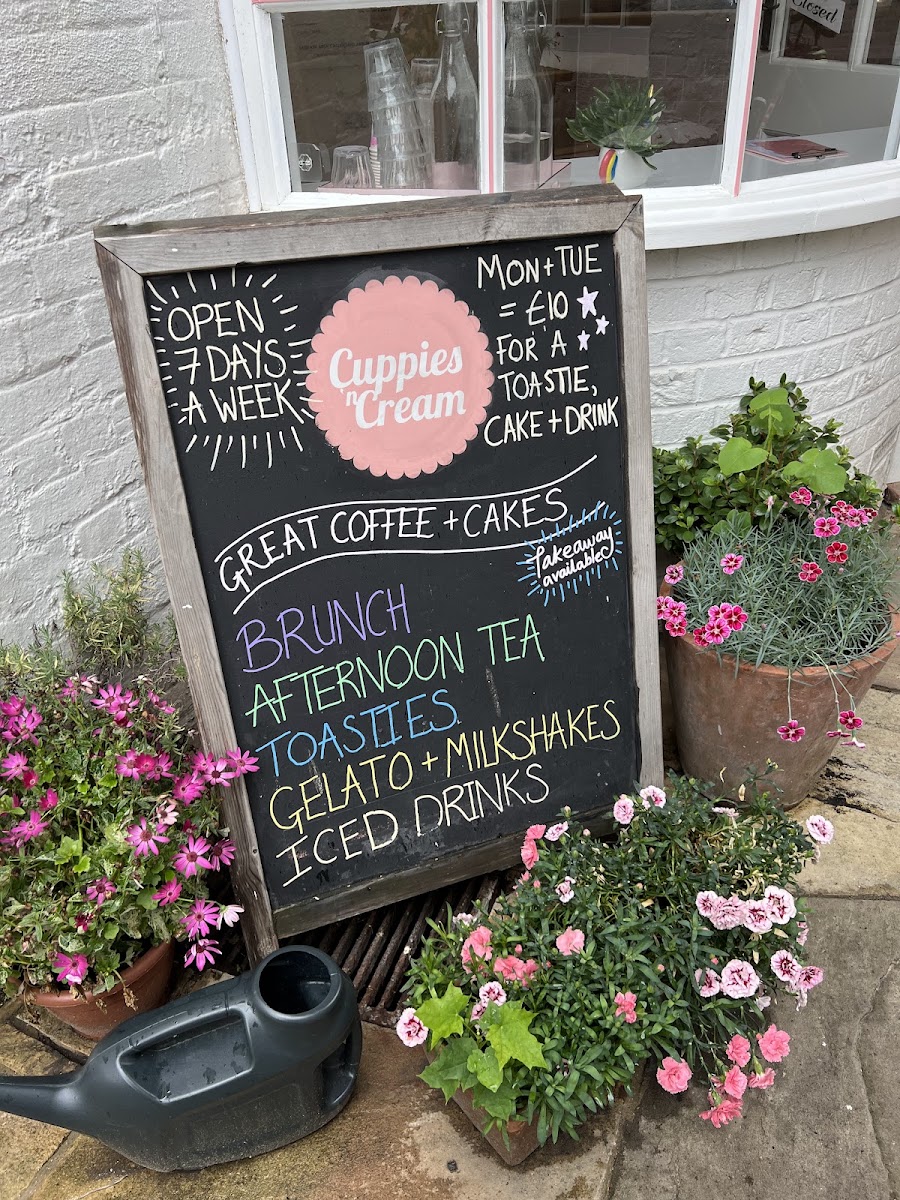 Closed
OPEN
7 DAYS
A WEEK
Cuppies
'n'
Cream
MON+TUE
= £10
FOR A
TOASTIE,
CAKE + DRINK
GREAT COFFEE + CAKES
Takeaway
available
BRUNCH
AFTERNOON TEA
TOASTIES
GELATO + MILKSHAKES
ICED DRINKS